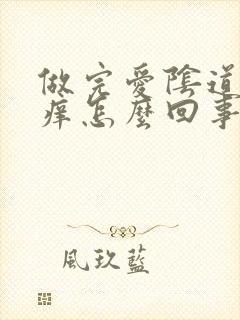 做完愛陰道
癢怎麼回事
風玖藍